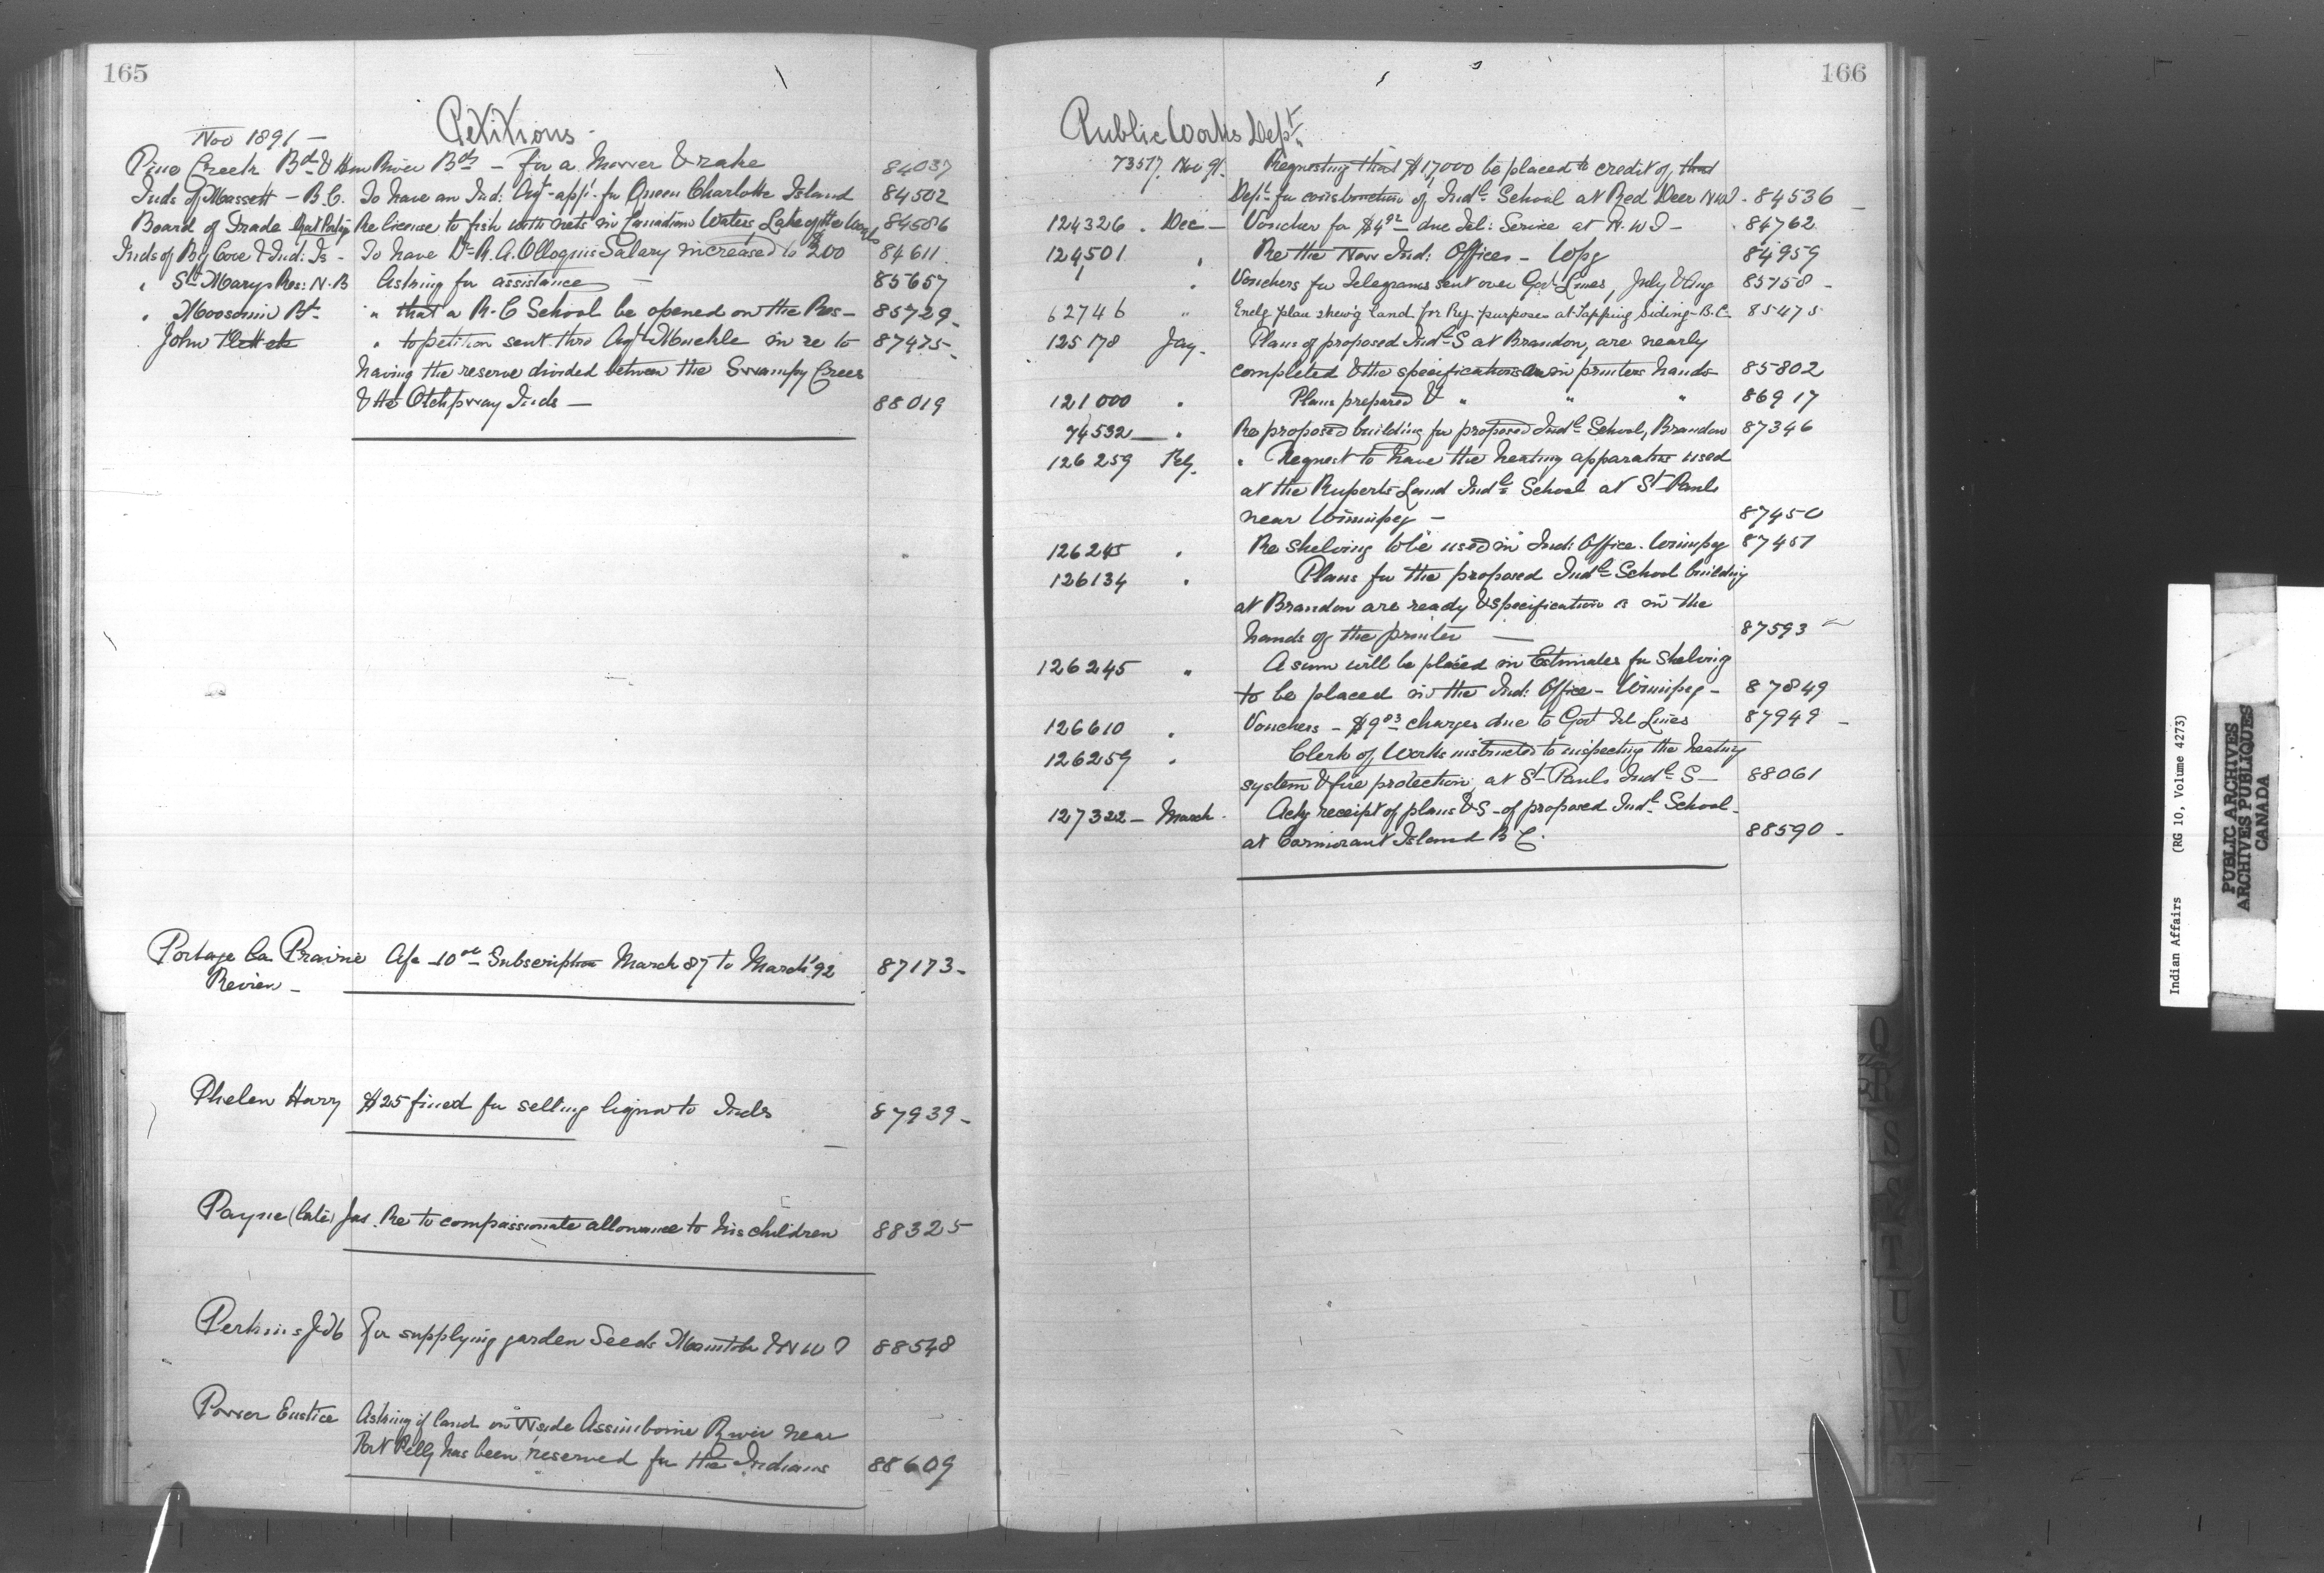 165
Petitions -
Nov 1891 -
Pine Creek Bd & River Bds - for a Mower & rake 84037
Inds of Massett - B.C. To have an Ind: Agt appt for Queen Charlotte Island 84502
Board of Trade Rat Portage Re license to fish with nets in Canadian Waters Lake of the Woods 84586
Inds of Big Cove & Ind: Is - To have Dr R. A. Salary increased to $200 84611
" St Marys Res: N.B Asking for assistance - 85657
" Moosomin Bd " that a R.C School be opened on the Res - 85729 -
John " to petition sent thro Agt Muckle in re to 87475 -
having the reserve divided between the Swampy Crees
& the Otchpway Inds - 88019
Portage la Prairie a/c 10 00 Subscription March 87 to March '92 87173 -
Review -
Phelen Harry $25 fined for selling liquor to Inds 87939 -
Payne (late) Jas. Re to compassionate allowance to his children 88325
Perkins J & Co For supplying garden Seeds Manitoba & N W T 88548
Power Eustice Asking if land on W side Assiniboine River near
Fort Pelly has been reserved for the Indians 88609
166
Public Works Dept.
73517. Nov 91. Requesting that $17,000 be placed to credit of that
Dept for construction of Indl School at Red Deer NWT - 84536
124326 . Dec - Voucher for $4 92 due Tel: Service at N.W T - 84762
124501 " Re the New Ind: Offices - Wpg 84959
" Vouchers for Telegrams sent over Govt Lines, July & Aug 85158 -
62746 " Enclg plan shewg land for Ry. purposes at Tapping Siding - B.C. 85475
125178 Jay. Plans of proposed Indl S at Brandon, are nearly
completed & the specifications are in printers hands 85802
121000 " Plans prepared & " " " 86917
74532 - " Re proposed building for proposed Indl School, Brandon 87346
126259 Feby. " Request to have the heating apparatus used
at the Ruperts Land Indl School at St Pauls
near Winnipeg - 87450
126245 " Re Shelving to be used in Ind: Office. Winnipeg 87451
126134 " Plans for the proposed Indl School building
at Brandon are ready & specification is in the
hands of the printer - 87593
126245 " A sum will be placed in Estimates for Shelving
to be placed in the Ind: Office - Winnipeg - 87849
126610 " Vouchers - $9 83 charges due to Govt Tel Lines 87949 -
126259 " Clerk of Works instructed to inspecting the heating
system & fire protection, at St Pauls Indl S - 88061
127322 - March. Ackg receipt of plans & S - of proposed Indl School -
at Cormorant Island B C. 88590 -
Q
R
S
T
U
V
W
Indian Affairs (RG 10, Volume 4273)
PUBLIC ARCHIVES
ARCHIVES PUBLIQUES
CANADA